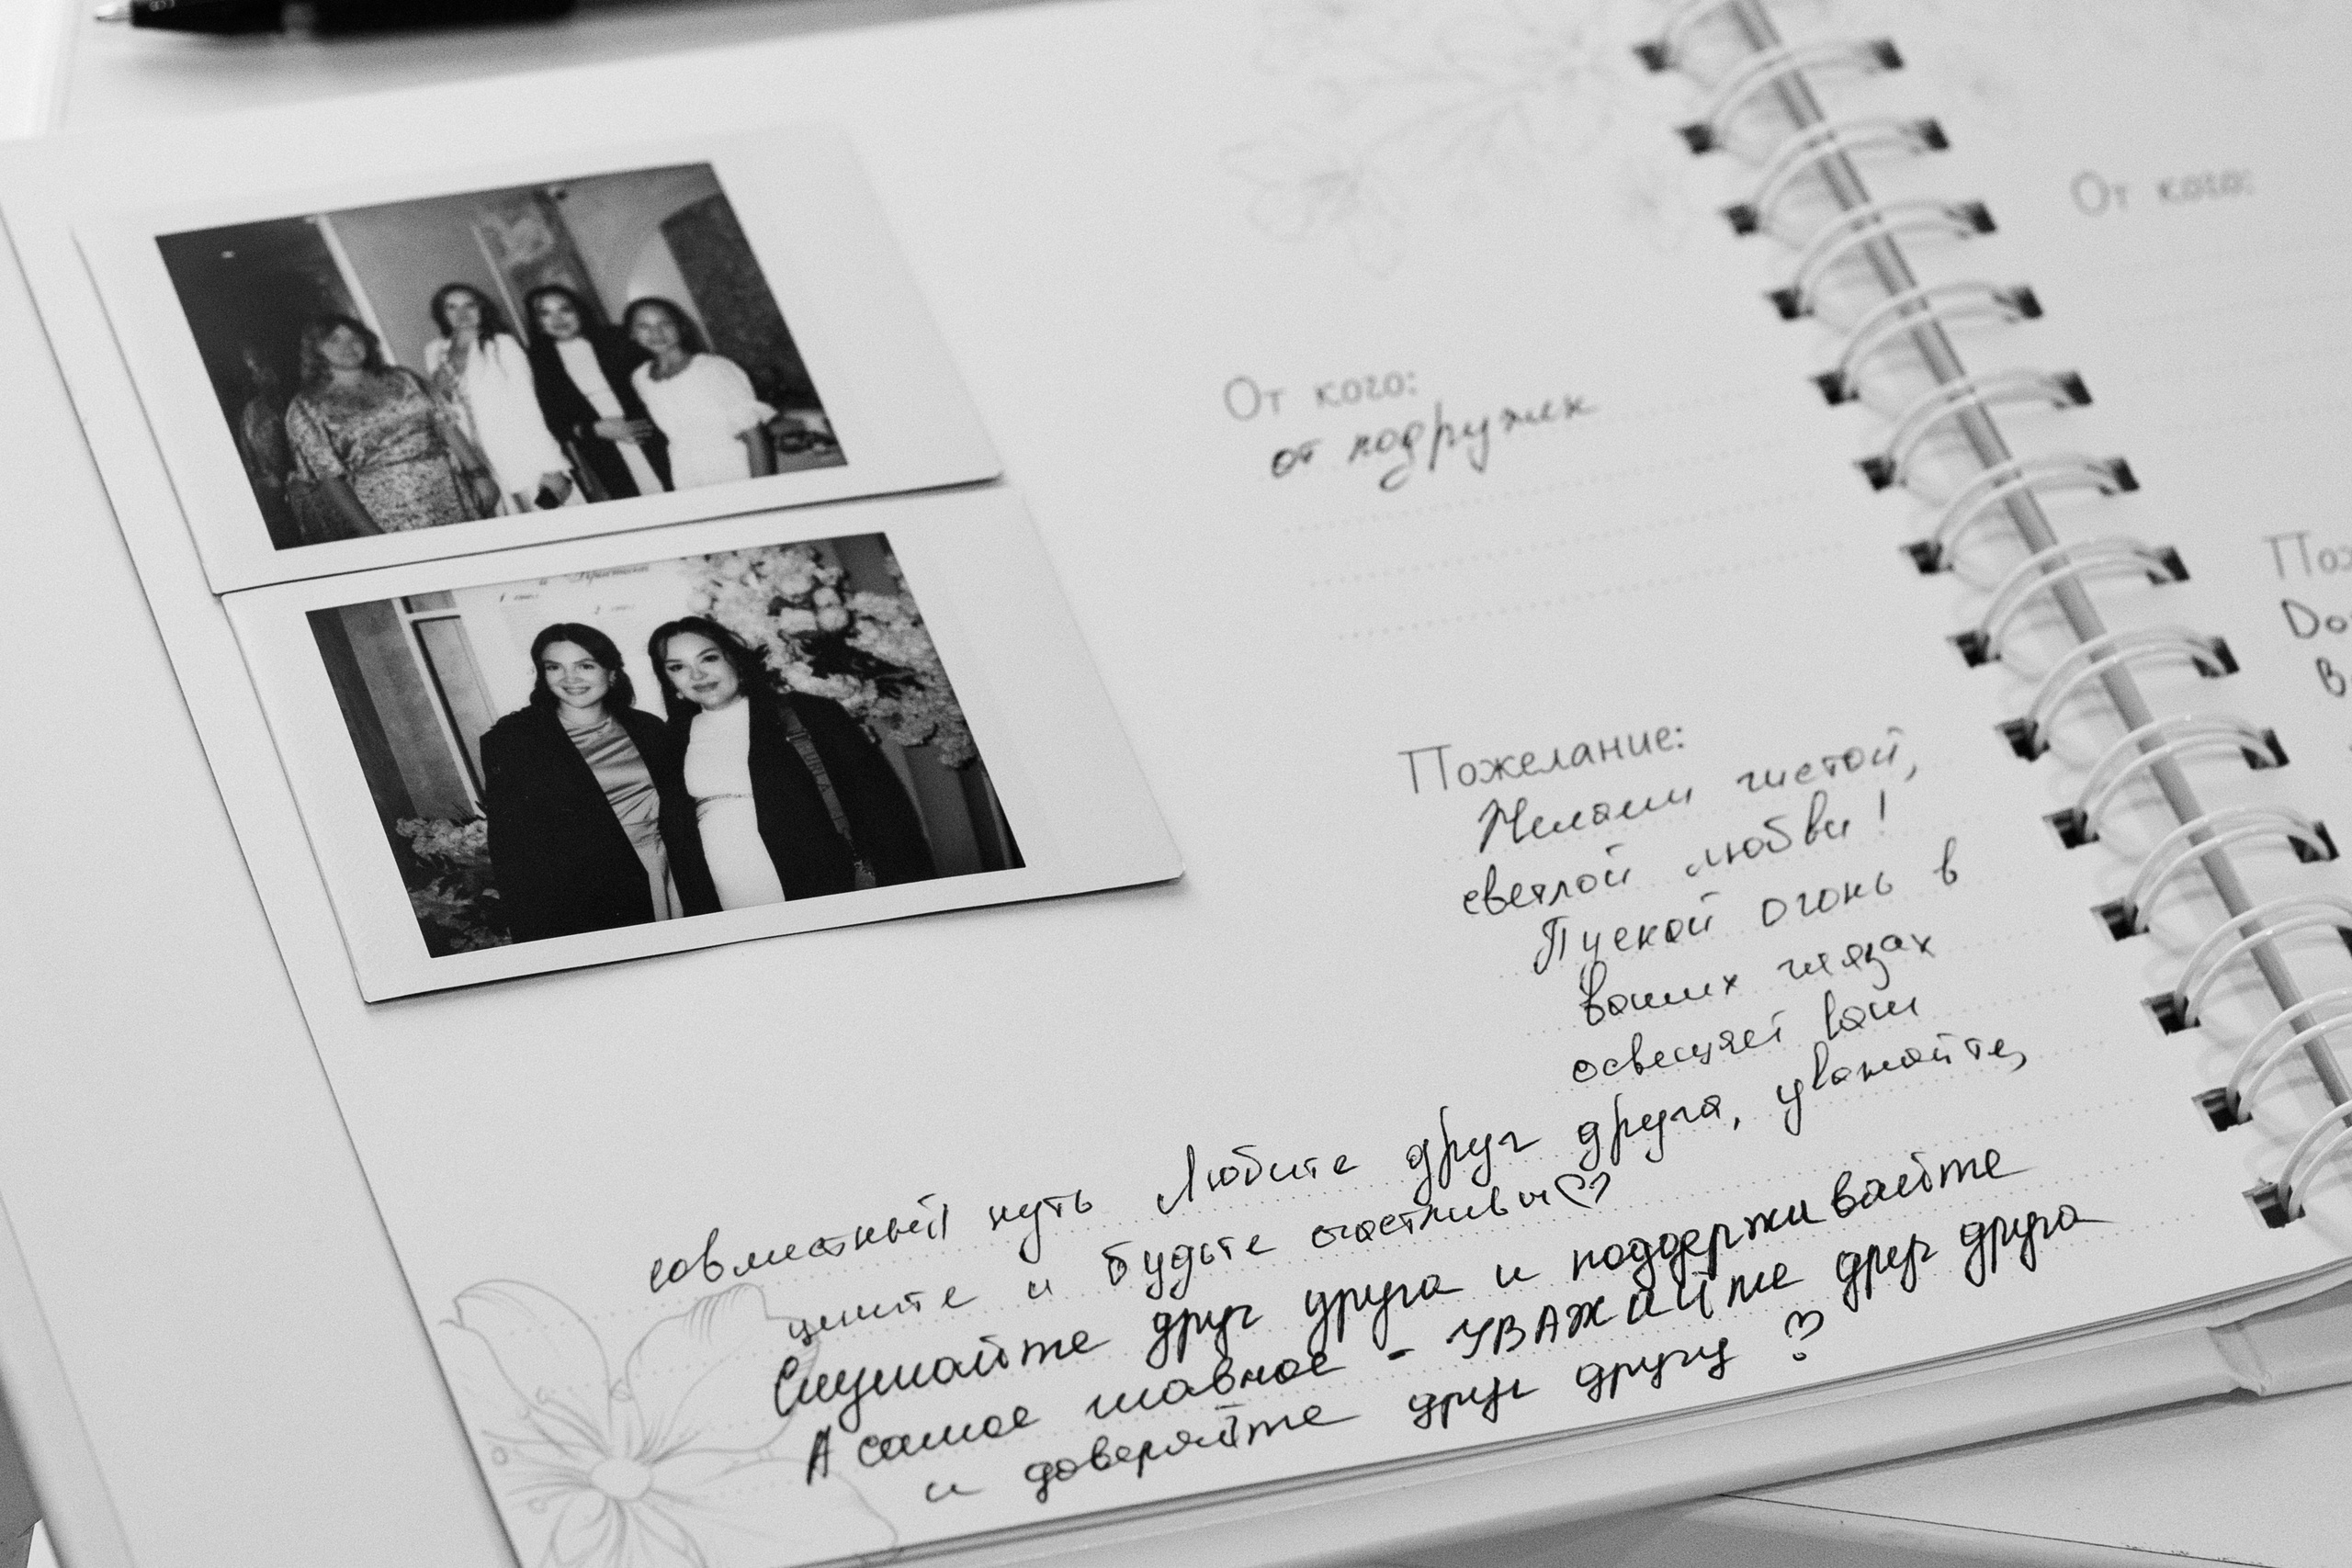 От кого:
от подружек
Пожелание:
Желаем чистой,
светлой любви!
Пускай огонь в
ваших глазах
освещяет ваш
совместный путь Любите друг друга, уважайте,
цените и будьте счастливы♡
Слушайте друг друга и поддерживайте
А самое главное - УВАЖАЙте друг друга
и доверяйте друг другу ♡
От кого: